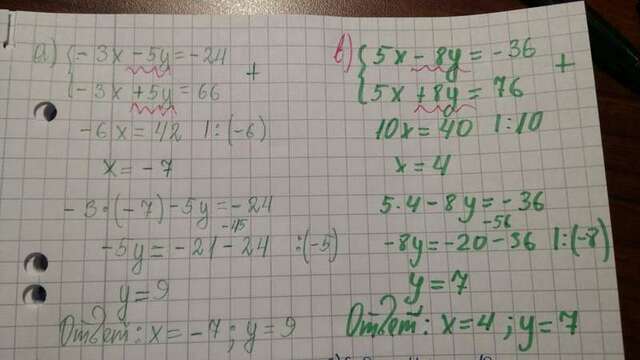 а) { -3x - 5y = -24
{ -3x + 5y = 66 +
-6x = 42 |:(-6)
x = -7
-3·(-7) - 5y = -24
-45
-5y = -21 - 24 :(-5)
y = 9
Ответ: x = -7; y = 9
в) { 5x - 8y = -36
{ 5x + 8y = 76 +
10x = 40 |:10
x = 4
5·4 - 8y = -36
-56
-8y = -20 - 36 |:(-8)
y = 7
Ответ: x = 4; y = 7